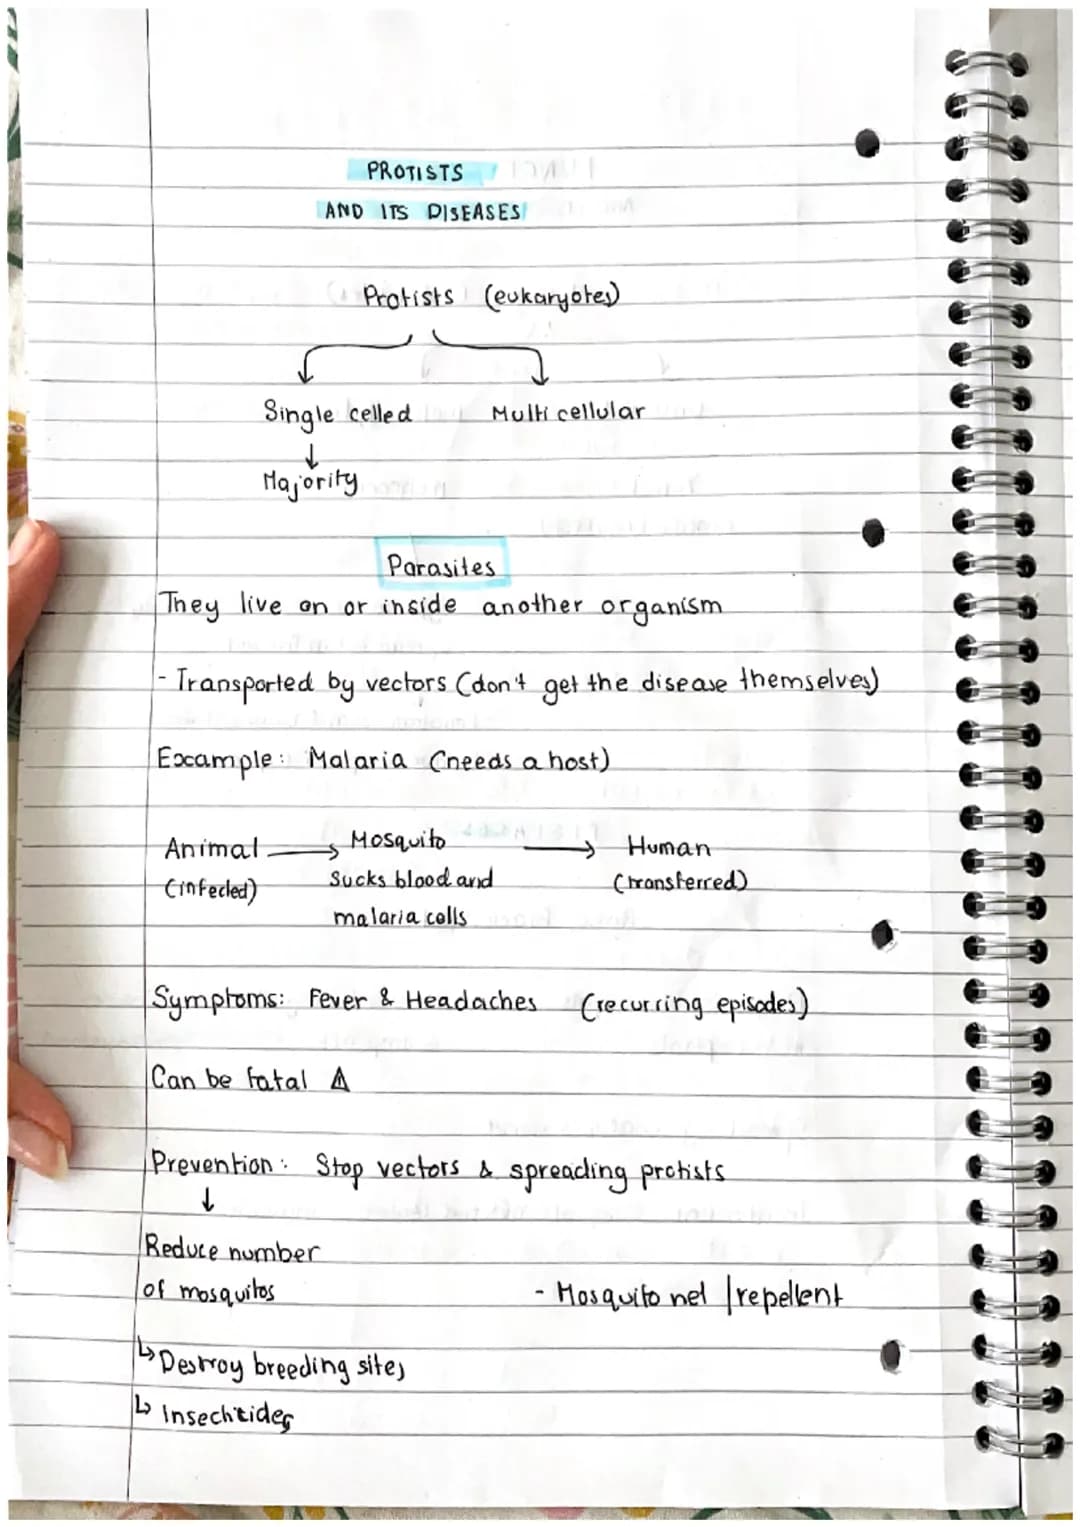 PROTISTS
AND ITS DISEASES
Protists (eukaryotes)
Single celled Multi cellular
↓
Majority
Parasites
They live on or inside another organism
- Transported by vectors (don't get the disease themselves)
Example: Malaria (needs a host)
Animal → Mosquito → Human
(infected) Sucks blood and (transferred)
malaria cells
Symptoms: Fever & Headaches (recurring episodes)
Can be fatal
Prevention: Stop vectors & spreading protists
↓
Reduce number
of mosquitos - Mosquito net / repellent
↳ Destroy breeding sites
↳ Insecticides